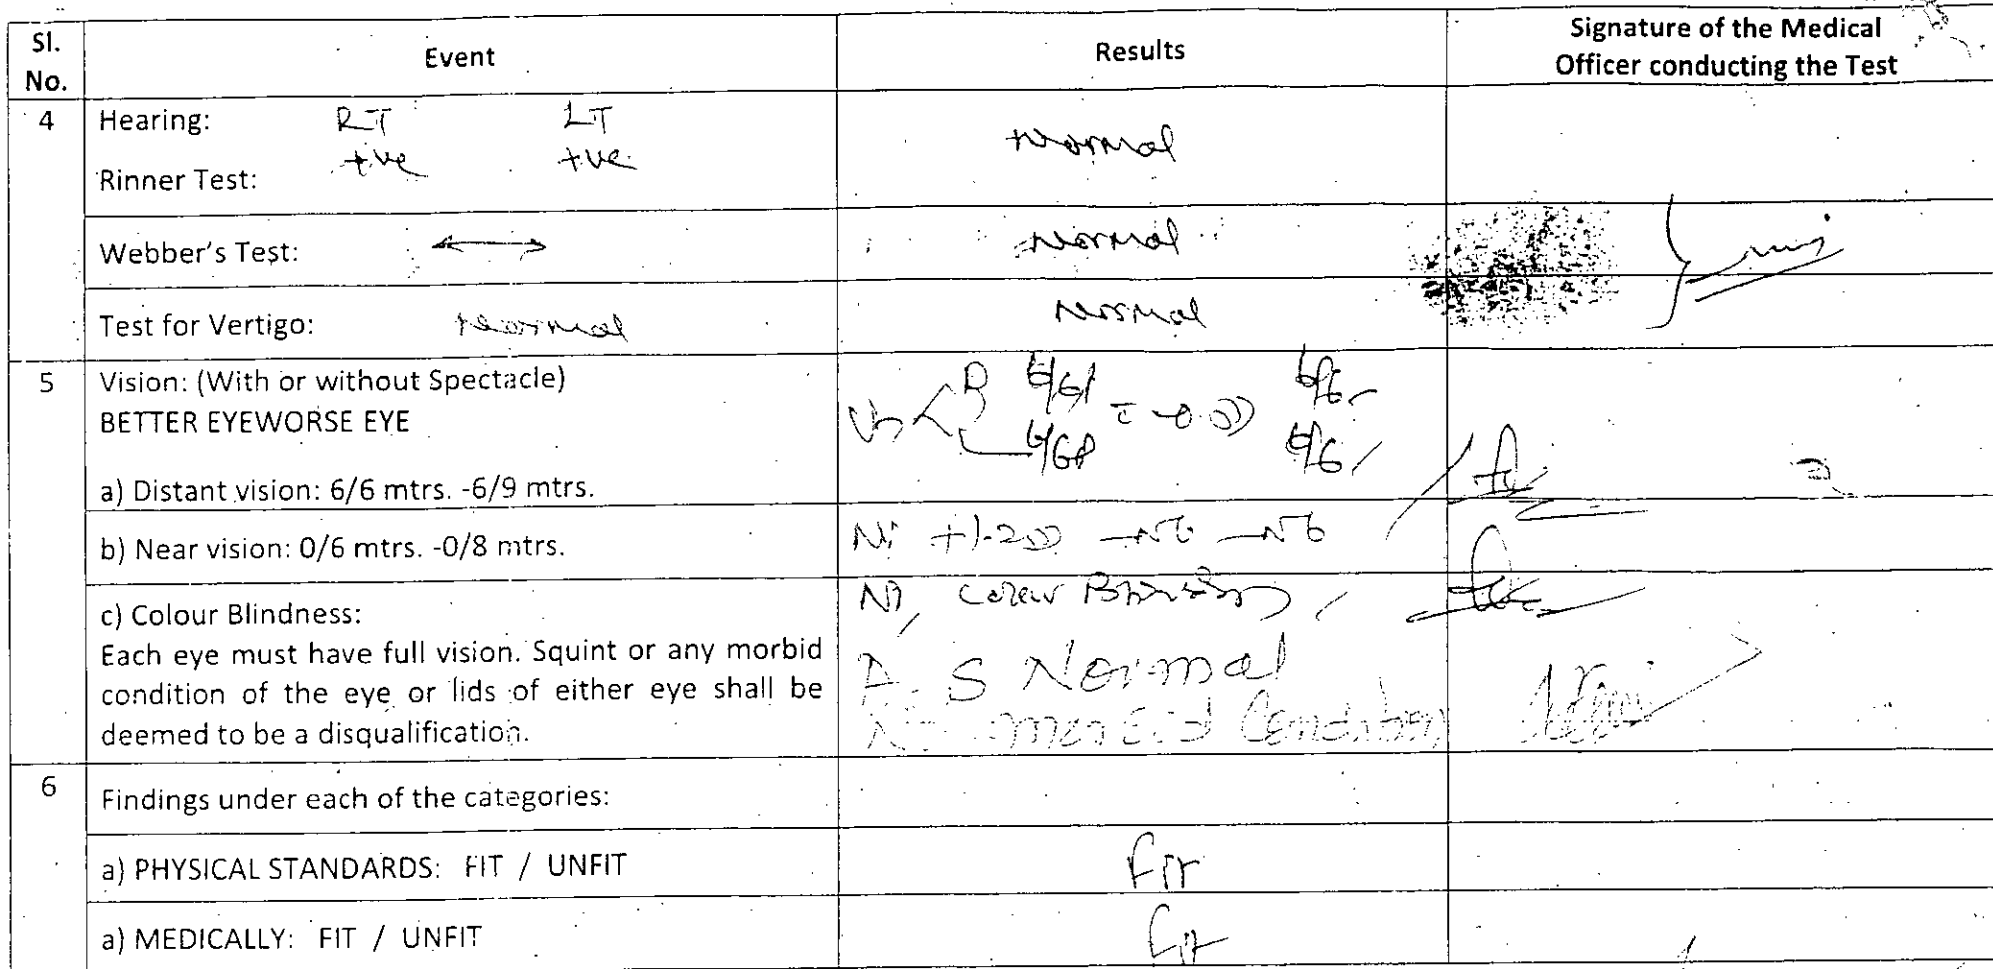 Sl. No. Event Results Signature of the Medical Officer conducting the Test
4 Hearing: RT LT
+ve +ve Normal
Rinner Test:
Webber's Test: ↔ Normal
Test for Vertigo: Normal Normal
5 Vision: (With or without Spectacle)
BETTER EYEWORSE EYE
6/6 6/6
a) Distant vision: 6/6 mtrs. -6/9 mtrs.
b) Near vision: 0/6 mtrs. -0/8 mtrs. N6 N6
c) Colour Blindness: Colour
Each eye must have full vision. Squint or any morbid
condition of the eye or lids of either eye shall be
deemed to be a disqualification.
A. S Normal
Condition
6 Findings under each of the categories:
a) PHYSICAL STANDARDS: FIT / UNFIT Fit
a) MEDICALLY: FIT / UNFIT Fit